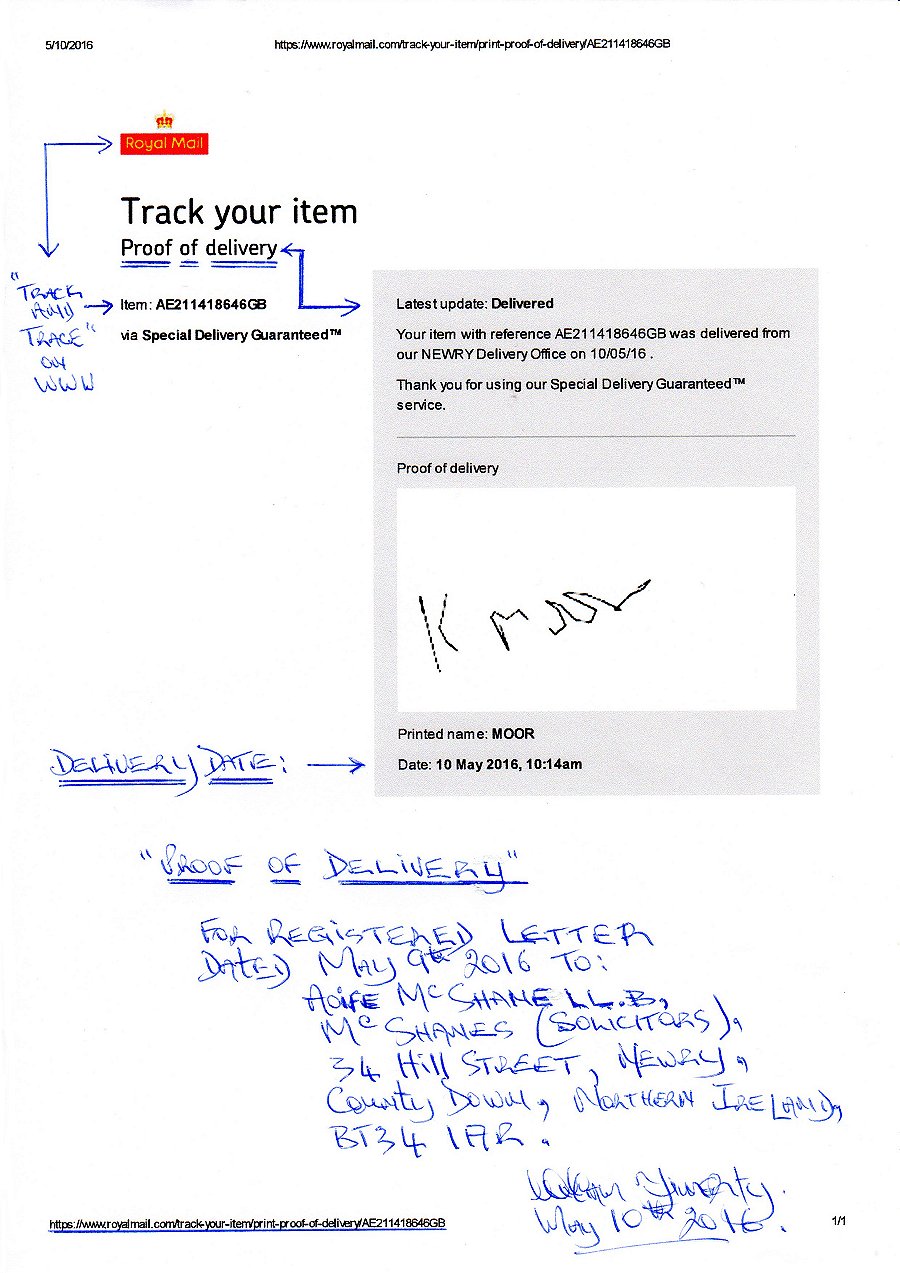 5/10/2016 https://www.royalmail.com/track-your-item/print-proof-of-delivery/AE211418646GB
Royal Mail
Track your item
Proof of delivery
"TRACK
AND
TRACE"
ON
WWW
Item: AE211418646GB
via Special Delivery Guaranteed™
Latest update: Delivered
Your item with reference AE211418646GB was delivered from
our NEWRY Delivery Office on 10/05/16 .
Thank you for using our Special Delivery Guaranteed™
service.
Proof of delivery
K MOOR
Printed name: MOOR
DELIVERY DATE:
Date: 10 May 2016, 10:14am
"PROOF OF DELIVERY"
FOR REGISTERED LETTER
DATED MAY 9th 2016 TO:
AOIFE McSHANE LL.B,
McSHANES (SOLICITORS),
34 Hill STREET, NEWRY,
COUNTY DOWN, NORTHERN IRELAND,
BT34 1AR.
May 10th 2016.
https://www.royalmail.com/track-your-item/print-proof-of-delivery/AE211418646GB 1/1